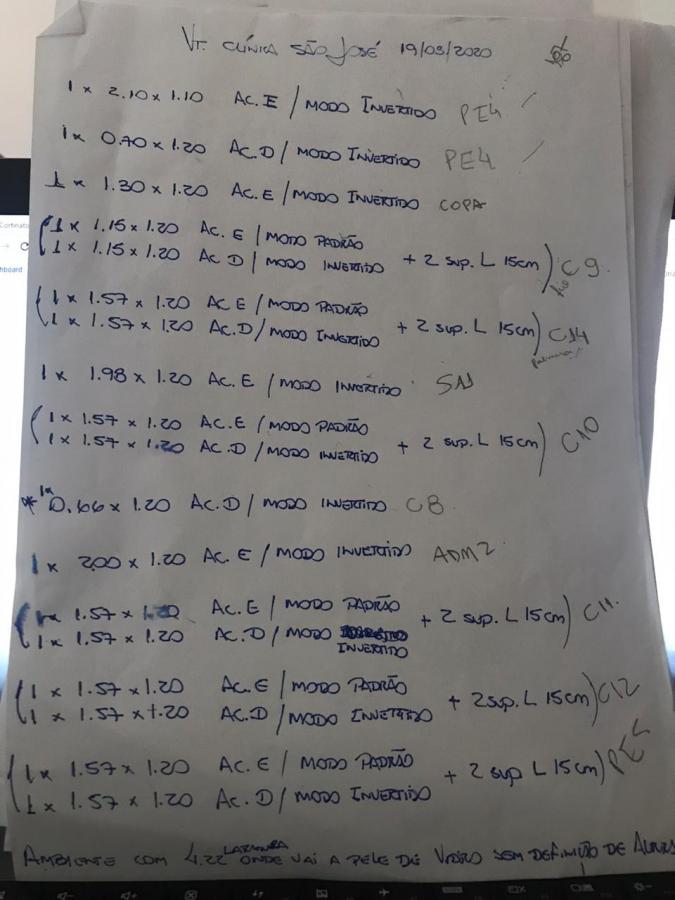 VT. CLÍNICA SÃO JOSÉ 19/03/2020
1 x 2.10 x 1.10 AC.E / MODO INVERTIDO PE4
1x 0.70 x 1.20 AC.D / MODO INVERTIDO PE4
1 x 1.30 x 1.20 AC.E / MODO INVERTIDO COPA
1 x 1.15 x 1.20 AC.E / MODO PADRÃO
1 x 1.15 x 1.20 AC D / MODO INVERTIDO + 2 SUP. L 15cm) C9
1 x 1.57 x 1.20 AC E / MODO PADRÃO
1 x 1.57 x 1.20 AC.D / MODO INVERTIDO + 2 SUP. L 15cm) C14
1 x 1.98 x 1.20 AC.E / MODO INVERTIDO
1 x 1.57 x 1.20 AC.E / MODO PADRÃO
1 x 1.57 x 1.20 AC.D / MODO INVERTIDO + 2 SUP. L 15cm) C10
* 1x 0.66 x 1.20 AC.D / MODO INVERTIDO C8
1 x 2.00 x 1.20 AC.E / MODO INVERTIDO ADM2
1 x 1.57 x 1.20 AC.E / MODO PADRÃO + 2 SUP. L 15cm) C11.
1 x 1.57 x 1.20 AC.D / MODO
INVERTIDO
1 x 1.57 x 1.20 AC.E / MODO PADRÃO
1 x 1.57 x 1.20 AC.D / MODO INVETIDO + 2 SUP. L 15cm) C12
1 x 1.57 x 1.20 AC.E / MODO PADRÃO
1 x 1.57 x 1.20 AC.D / MODO INVERTIDO + 2 SUP L 15cm)
AMBIENTE COM 4.22 LARGURA ONDE VAI A PELE DE VIDRO SEM DEFINIÇÃO DE